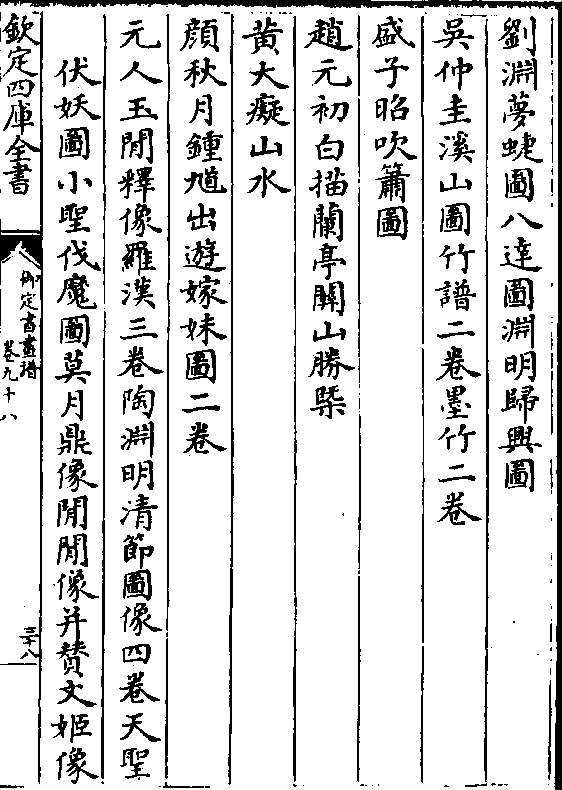 劉淵夢蜨圖八達圖淵明歸興圖
吳仲圭溪山圖竹譜二卷墨竹二卷
盛子昭吹簫圖
趙元初白描蘭亭關山勝槩
黃大癡山水
顔秋月鍾馗出遊嫁妹圖二卷
元人玉閒釋像羅漢三卷陶淵明清節圖像四卷天聖
伏妖圖小聖伐魔圖莫月鼎像閒閒像并賛文姬像
欽定四庫全書
御定書畫譜
卷九十八
三十八